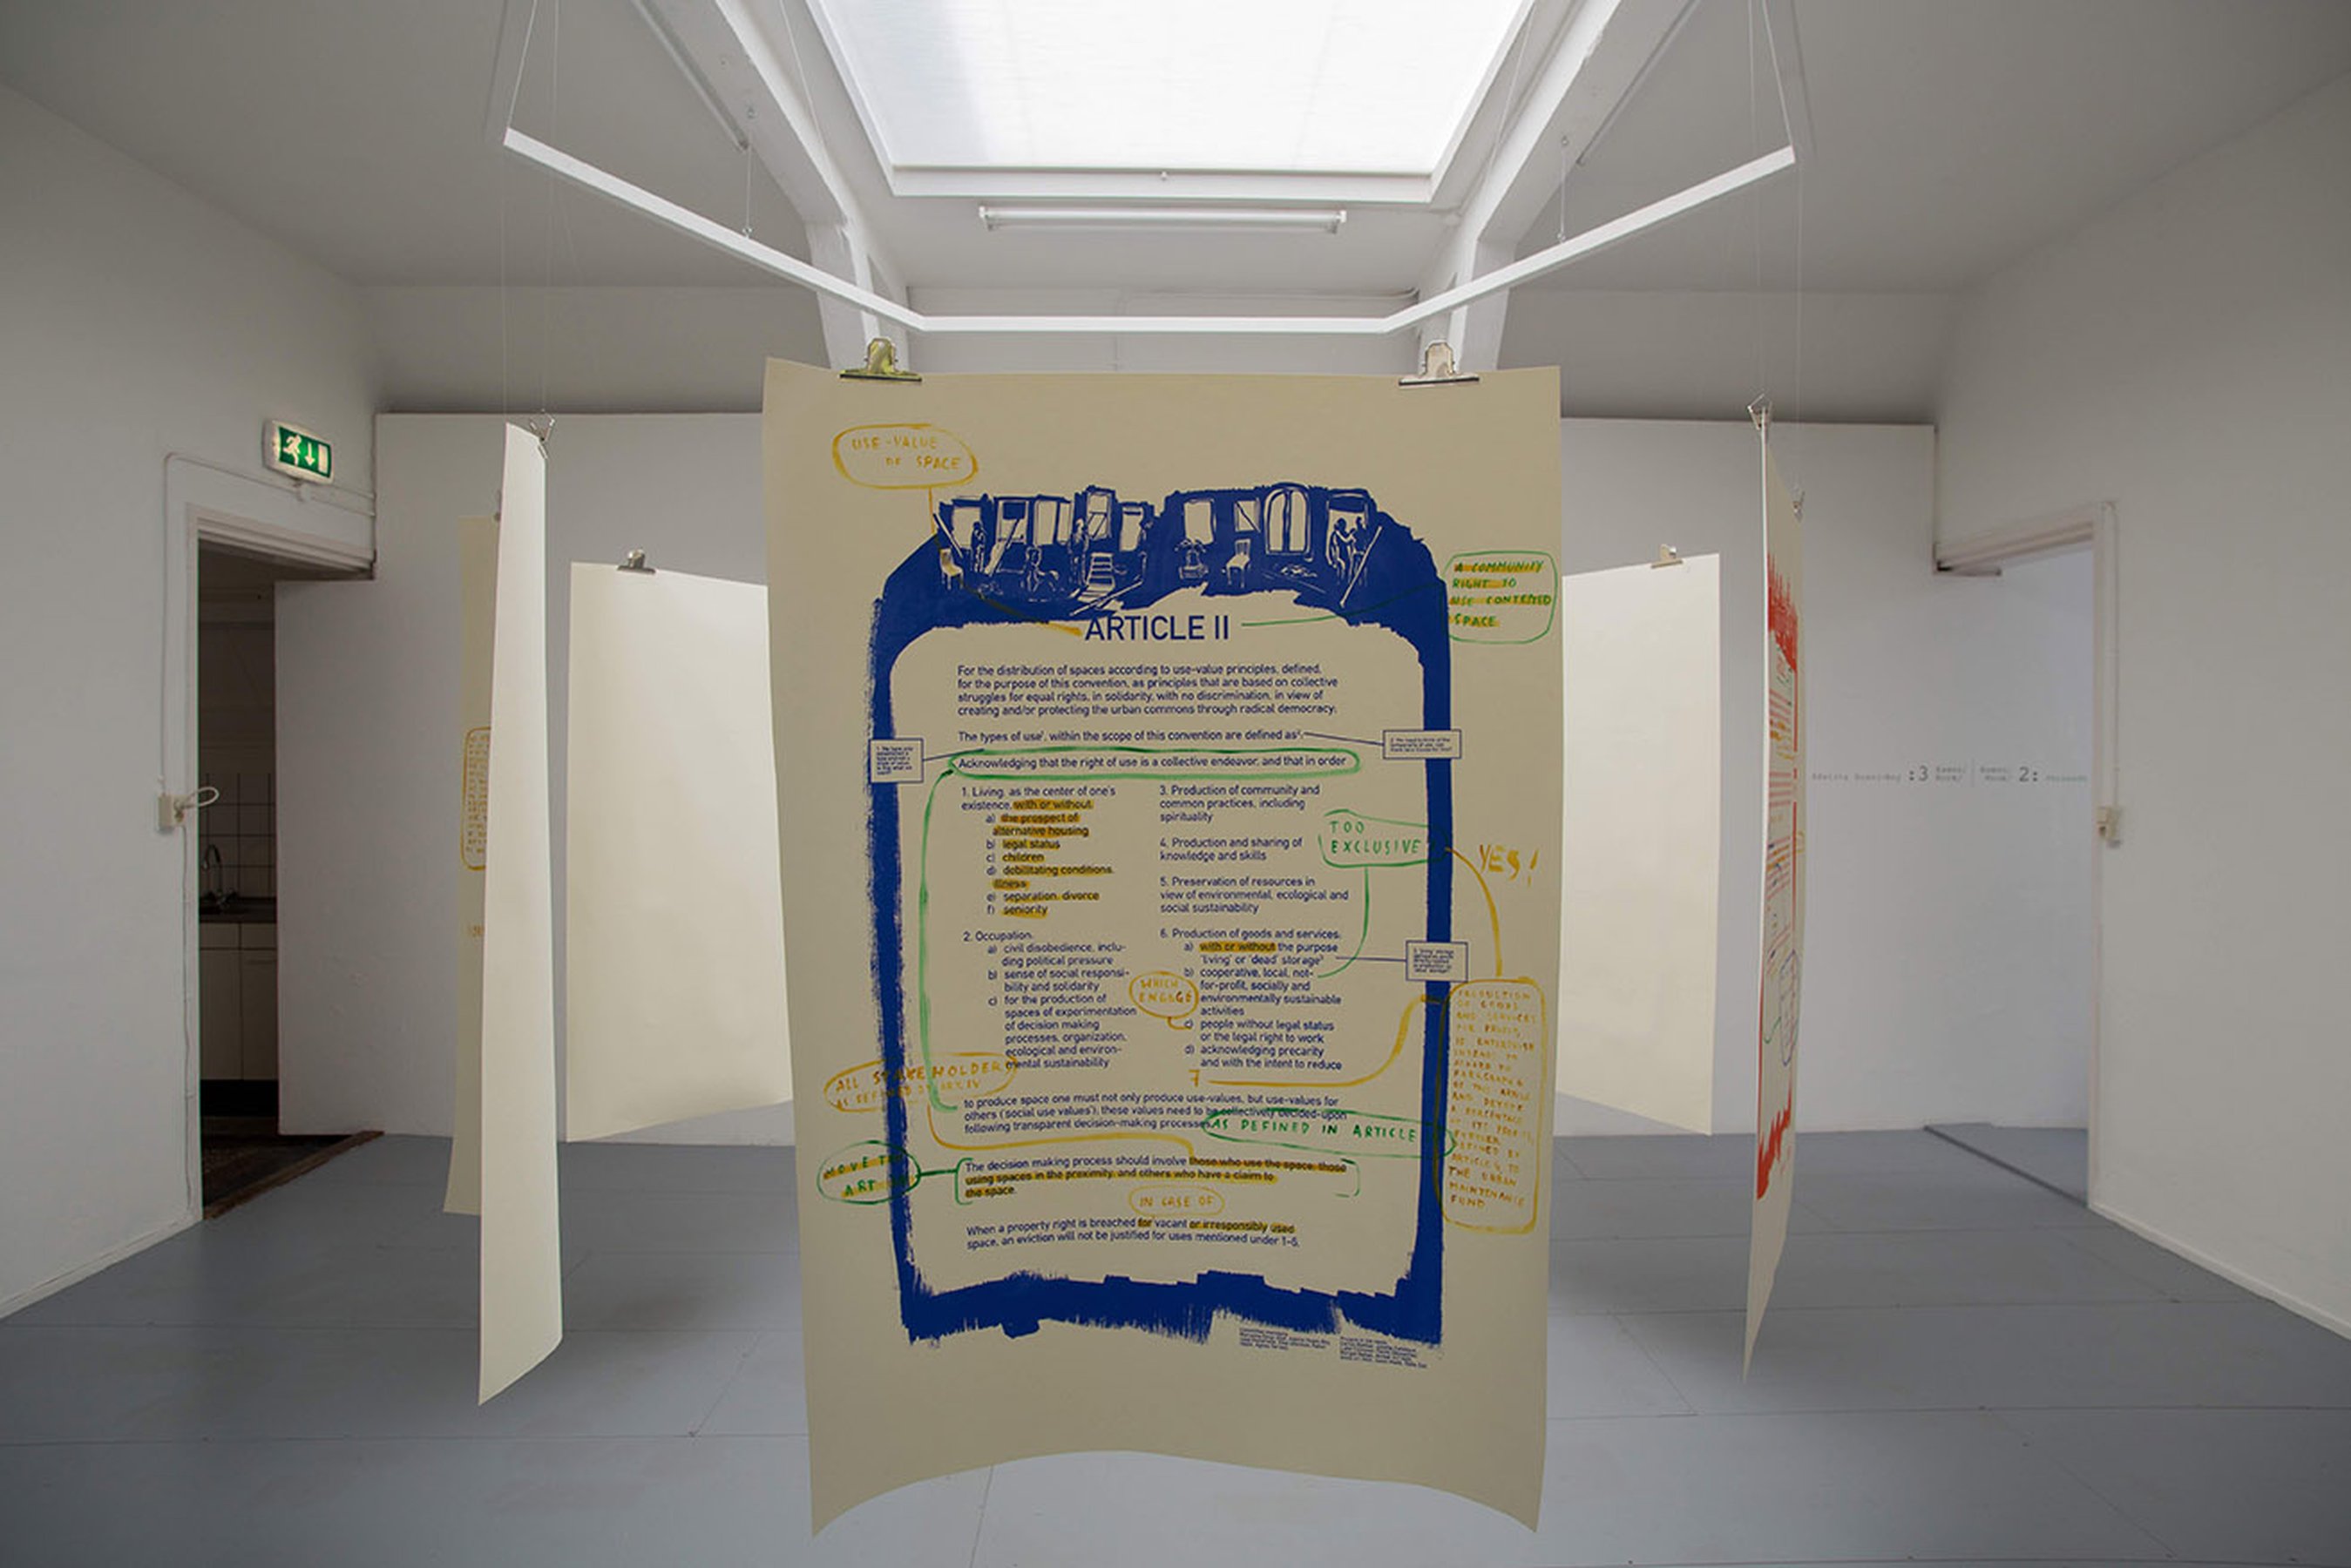 USE-VALUE
OF SPACE
A COMMUNITY
RIGHT TO
USE CONTESTED
SPACE
ARTICLE II
For the distribution of spaces according to use-value principles, defined,
for the purpose of this convention, as principles that are based on collective
struggles for equal rights, in solidarity, with no discrimination, in view of
creating and/or protecting the urban commons through radical democracy.
The types of use¹, within the scope of this convention are defined as²:
Acknowledging that the right of use is a collective endeavor, and that in order
1. Living, as the center of one's
existence, with or without:
a) the prospect of
alternative housing
b) legal status
c) children
d) debilitating conditions,
illness
e) separation, divorce
f) seniority
2. Occupation:
a) civil disobedience, inclu-
ding political pressure
b) sense of social responsi-
bility and solidarity
c) for the production of
spaces of experimentation
of decision making
processes, organization,
ecological and environ-
mental sustainability
3. Production of community and
common practices, including
spirituality
4. Production and sharing of
knowledge and skills
5. Preservation of resources in
view of environmental, ecological and
social sustainability
6. Production of goods and services:
a) with or without the purpose
'living' or 'dead' storage³
b) cooperative, local, not-
for-profit, socially and
environmentally sustainable
activities
c) people without legal status
or the legal right to work
d) acknowledging precarity
and with the intent to reduce
7
TOO
EXCLUSIVE
YES!
WHICH
ENGAGE
PRODUCTION
OF GOODS
AND SERVICES
FOR PROFIT
OF THIS ARTICLE
AND DEVOTE
A PERCENTAGE
OF ITS PROFITS
DEFINED BY
TO
THE URBAN
MAINTENANCE
FUND
ALL STAKEHOLDERS
AS DEFINED BY ART. IV
to produce space one must not only produce use-values, but use-values for
others ('social use values'), these values need to be collectively decided-upon
following transparent decision-making processes.
AS DEFINED IN ARTICLE
MOVE TO
ART
The decision making process should involve those who use the space, those
using spaces in the proximity, and others who have a claim to
the space.
IN CASE OF
When a property right is breached for vacant or irresponsibly used
space, an eviction will not be justified for uses mentioned under 1-6.
:3
2: